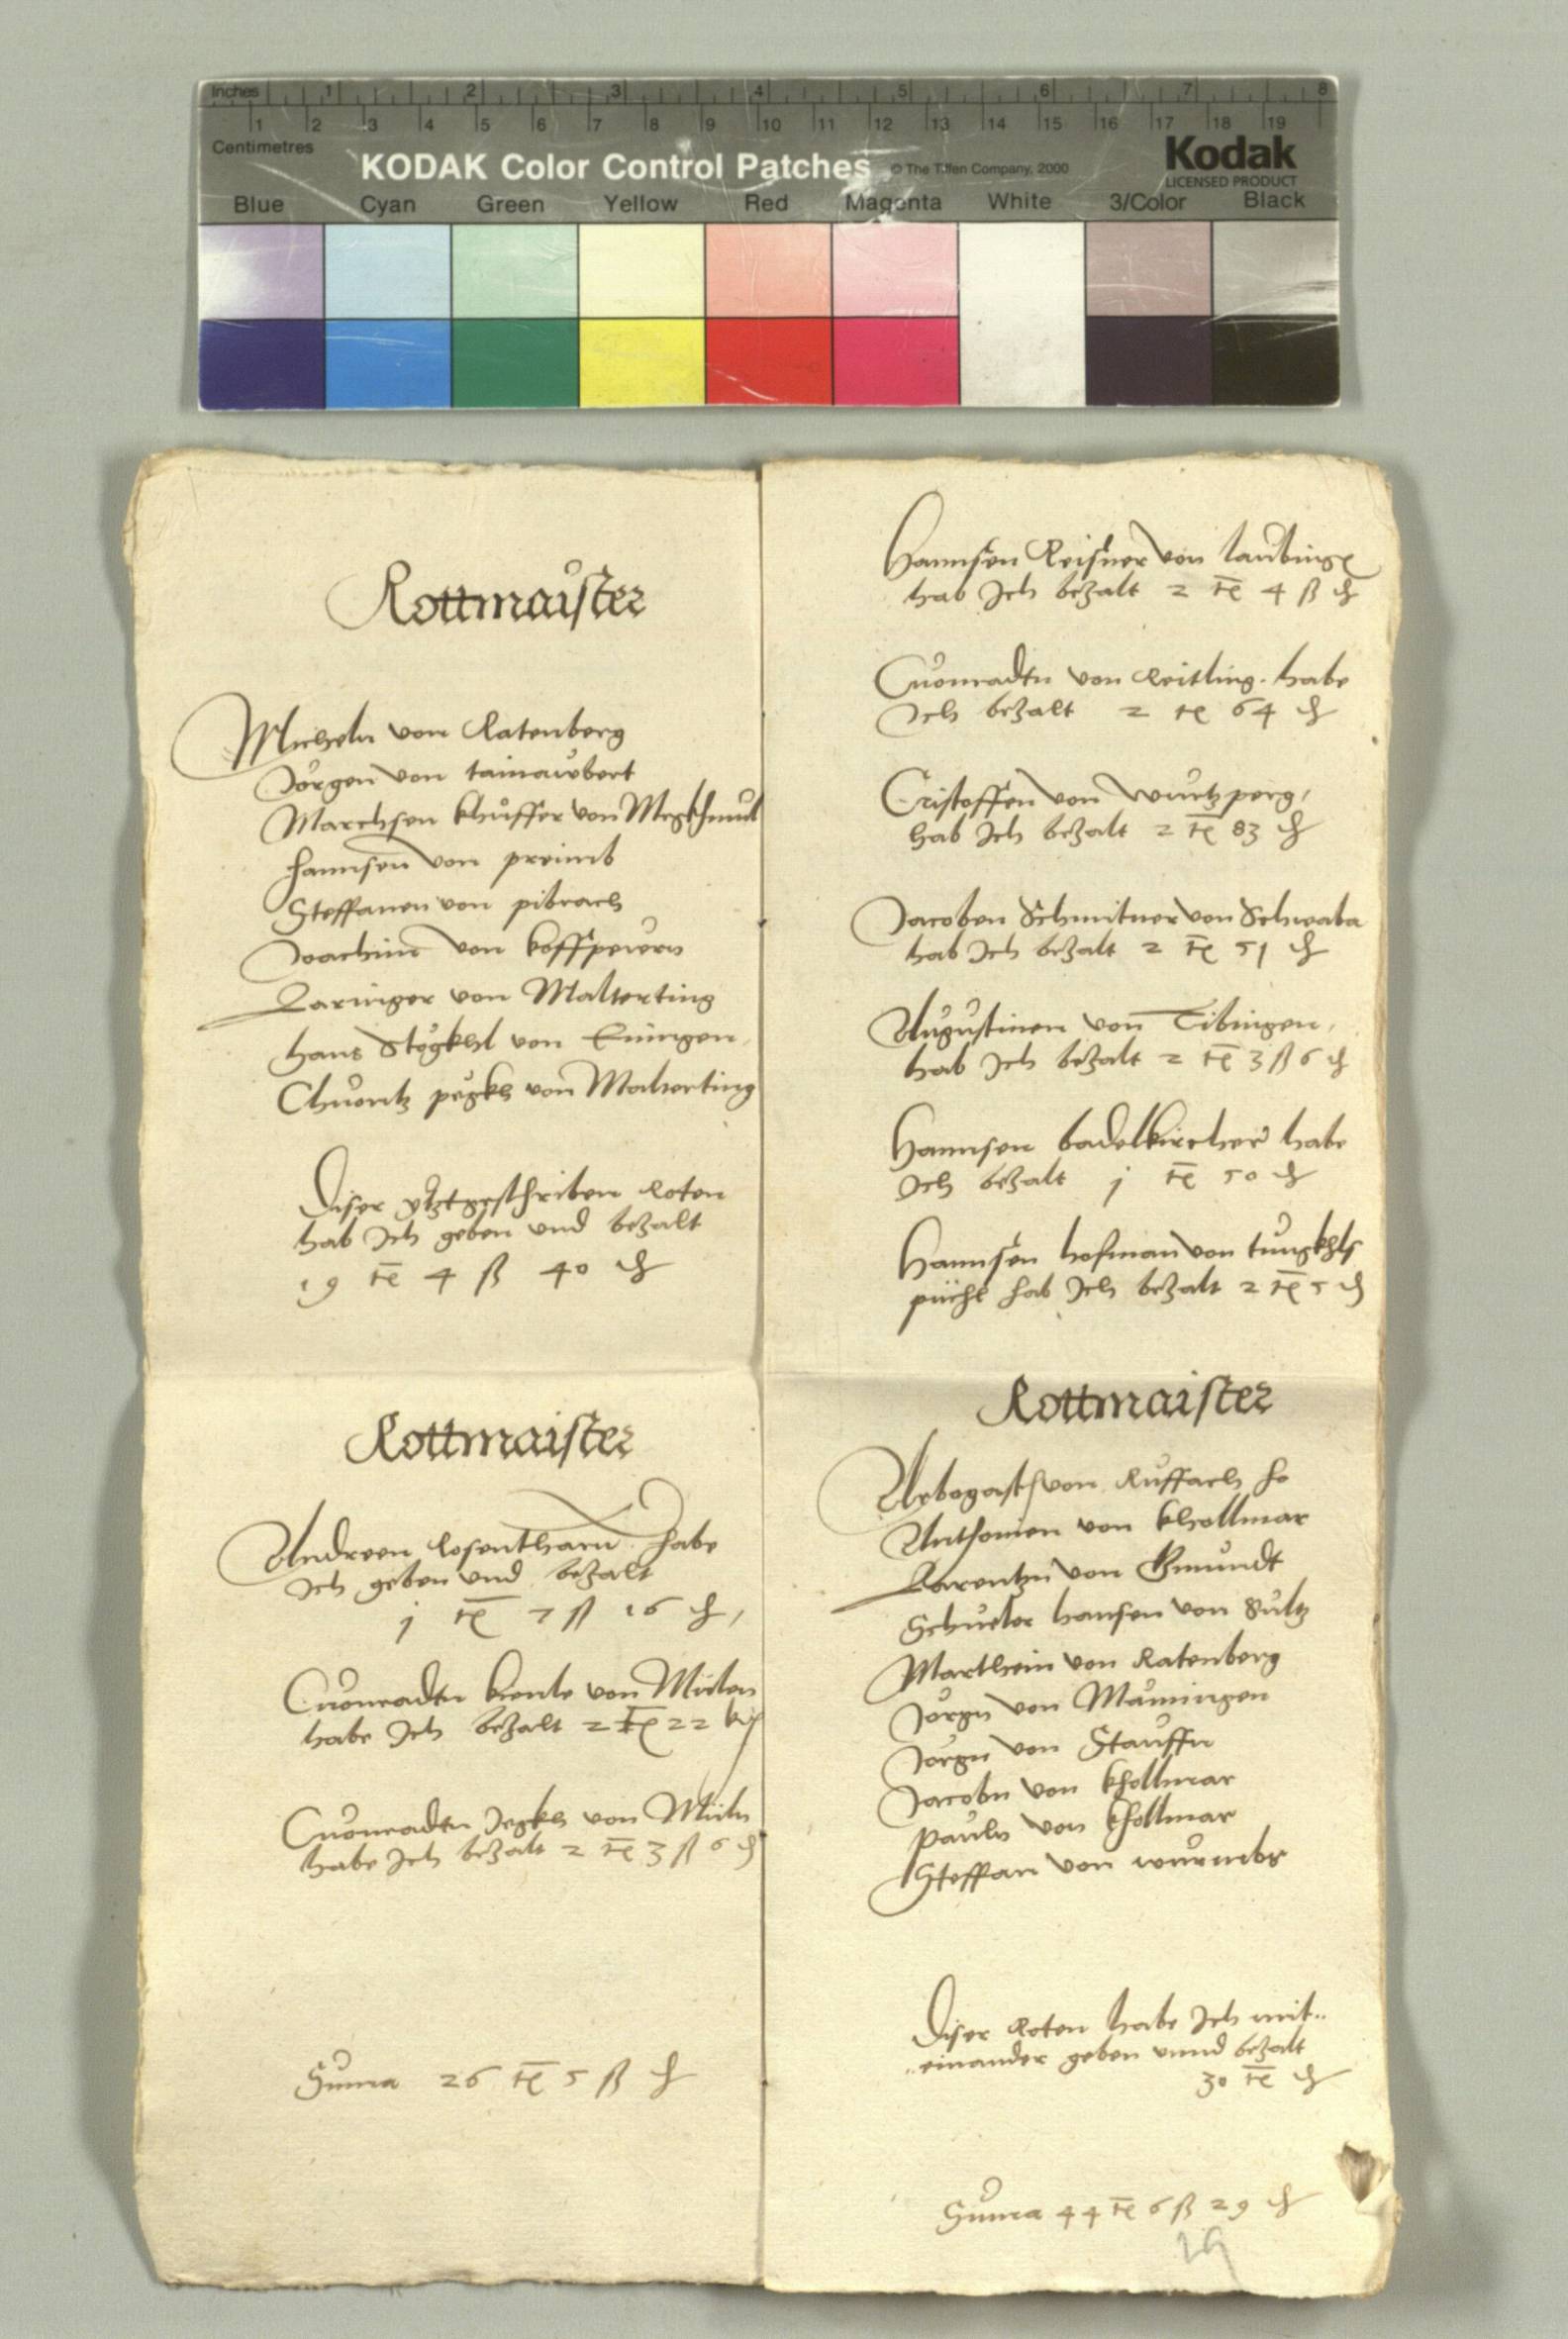 Inches 1 2 3 4 5 6 7 8
1 2 3 4 5 6 7 8 9 10 11 12 13 14 15 16 17 18 19
Centimetres
KODAK Color Control Patches © The Tiffen Company, 2000 Kodak
LICENSED PRODUCT
Blue Cyan Green Yellow Red Magenta White 3/Color Black
Rottmaister
Micheln von Ratenberg
Jörgen von
Marchsen khuffer von
hannsen von preimb
Steffanen von pibrach
Joachim von
Laringer von Malterting
hans Stögkhl von Eningen
Chuontz pegkh von Malterting
Diser yetztgeschriben Roten
hab Ich geben vnd bezalt
19 ℔ 4 ß 40 ₰
Rottmaister
Andreen Rosentham habe
Ich geben vnd bezalt
j ℔ 7 ß 16 ₰
Cuonradtn von Müln
habe Ich bezalt 2 ℔ 22 kr
Cuonradtn Jegkh von Müln
habe Ich bezalt 2 ℔ 3 ß 6 ₰
Suma 26 ℔ 5 ß ₰
Hannsen Reisner von laubing
hab Ich bezalt 2 ℔ 4 ß ₰
Cuonradtn von Reitling. habe
Ich bezalt 2 ℔ 64 ₰
Cristoffen von wurtzperg,
hab Ich bezalt 2 ℔ 83 ₰
Jacoben Schmitner von Schwaba
hab Ich bezalt 2 ℔ 51 ₰
Augustinen von Tibingen,
hab Ich bezalt 2 ℔ 3 ß 6 ₰
Hannsen badelkircher habe
Ich bezalt j ℔ 50 ₰
Hannsen hofman von tungkhls
püchl hab Ich bezalt 2 ℔ 5 ₰
Rottmaister
Arbogast von Ruffach
Anthonien von khollmar
Larentzn von Gmundt
Schueler hansen von Sultz
Marthein von Ratenberg
Jörgn von Mämingen
Jörgn von Stauffn
Jacobn von khollmar
Pauln von khollmar
Steffan von wurmbs
Diser Roten habe Ich mit..
..einander geben vnnd bezalt
30 ℔ ₰
Suma 44 ℔ 6 ß 29 ₰